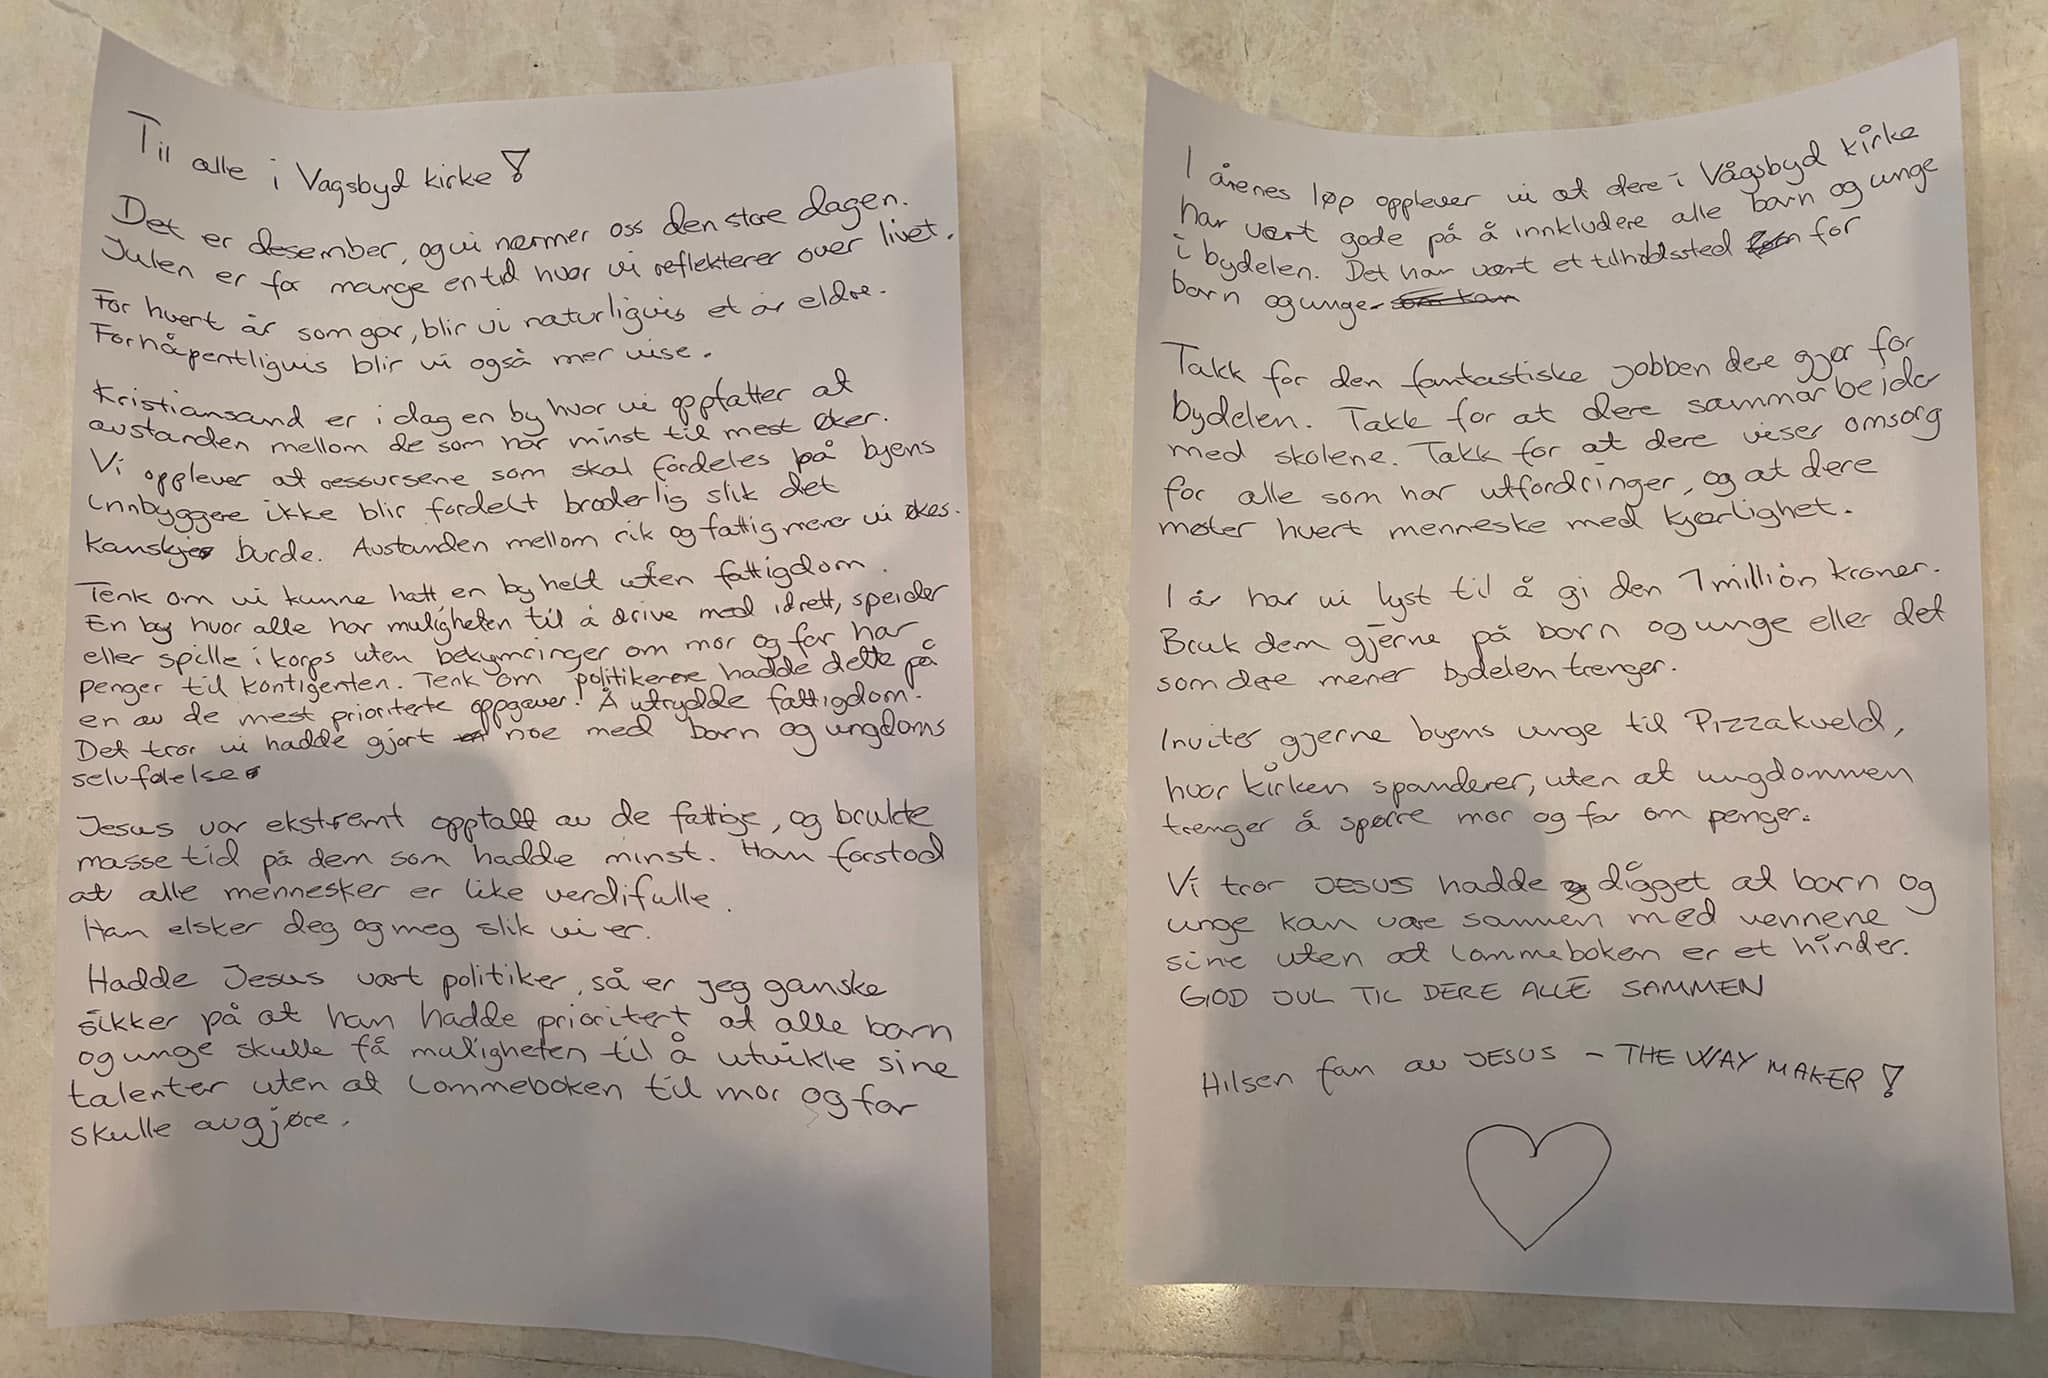 Til alle i Vagsbyd kirke!
Det er desember, og vi nærmer oss den store dagen.
Julen er for mange en tid hvor vi reflekterer over livet.
For hvert år som går, blir vi naturligvis et år eldre.
Forhåpentligvis blir vi også mer vise.
Kristiansand er i dag en by hvor vi oppfatter at
avstanden mellom de som har minst til mest øker.
Vi opplever at ressursene som skal fordeles på byens
innbyggere ikke blir fordelt broderlig slik det
kanskje burde. Avstanden mellom rik og fattig mener vi økes.
Tenk om vi kunne hatt en by helt uten fattigdom.
En by hvor alle har muligheten til å drive med idrett, speider
eller spille i korps uten bekymringer om mor og far har
penger til kontigenten. Tenk om politikerne hadde dette på
en av de mest prioriterte oppgaver! Å utrydde fattigdom.
Det tror vi hadde gjort noe med barn og ungdoms
selvfølelse
Jesus var ekstremt opptatt av de fattige, og brukte
masse tid på dem som hadde minst. Han forstod
at alle mennesker er like verdifulle.
Han elsker deg og meg slik vi er.
Hadde Jesus vært politiker, så er jeg ganske
sikker på at han hadde prioritert at alle barn
og unge skulle få muligheten til å utvikle sine
talenter uten at lommeboken til mor og far
skulle avgjøre.
I årenes løp opplever vi at dere i Vågsbyd kirke
har vært gode på å innkludere alle barn og unge
i bydelen. Det har vært et tilholdssted for
barn og unge.
Takk for den fantastiske jobben dere gjør for
bydelen. Takk for at dere sammarbeider
med skolene. Takk for at dere viser omsorg
for alle som har utfordringer, og at dere
møter hvert menneske med kjærlighet.
I år har vi lyst til å gi den 1 million kroner.
Bruk dem gjerne på barn og unge eller det
som dere mener bydelen trenger.
Inviter gjerne byens unge til Pizzakveld,
hvor kirken spanderer, uten at ungdommen
trenger å spørre mor og far om penger.
Vi tror JESUS hadde digget at barn og
unge kan være sammen med vennene
sine uten at lommeboken er et hinder.
GOD JUL TIL DERE ALLE SAMMEN
Hilsen fan av JESUS - THE WAY MAKER!